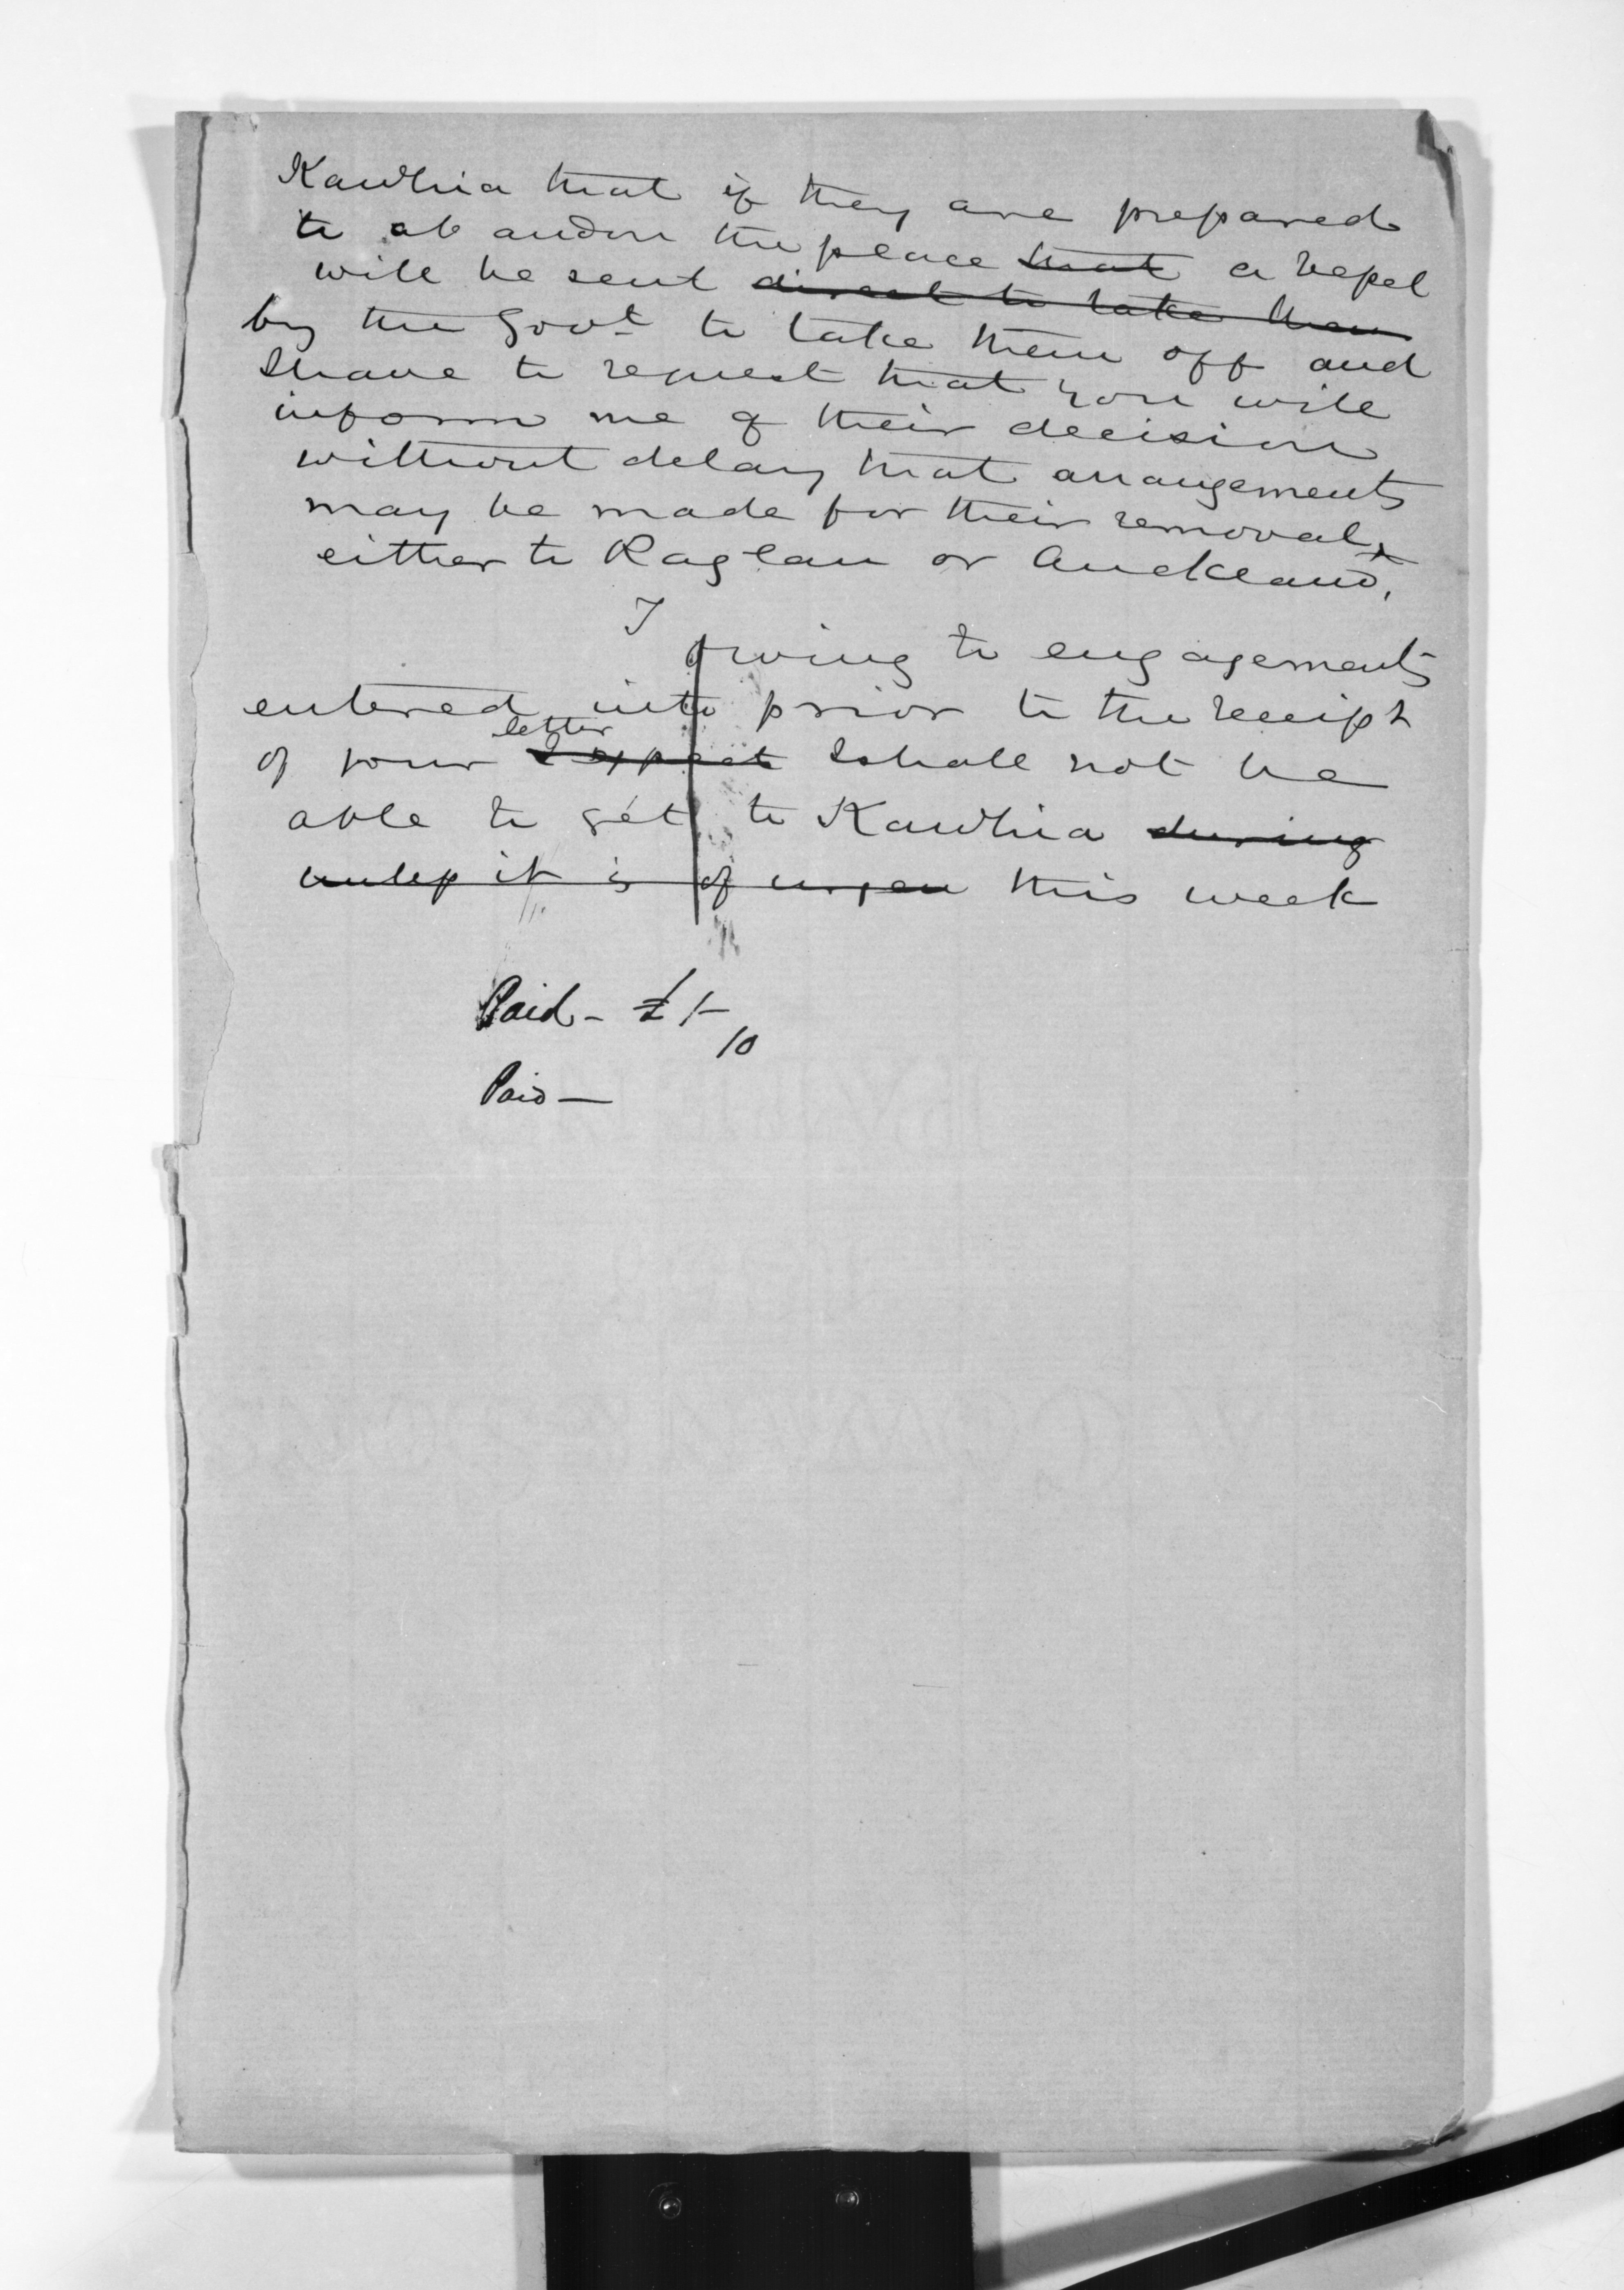 Kawhia that if they are prepared
to abandon the place that a vessel
will be sent direct to take them
by the Govt to take them off and
I have to request that you will
inform me of their decision
without delay that arrangements
may be made for their removal
either to Raglan or Auckland.
I
owing to engagements
entered into prior to the receipt
letter
of your I expect I shall not be
able to get to Kawhia during
unless it is of urgen this week
Paid - £1-
10
Paid —